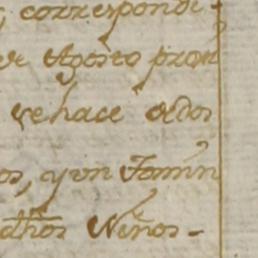 correspondi-
de Agosto prox
se hace dedos
os, y un Fomin
dhos Niños -